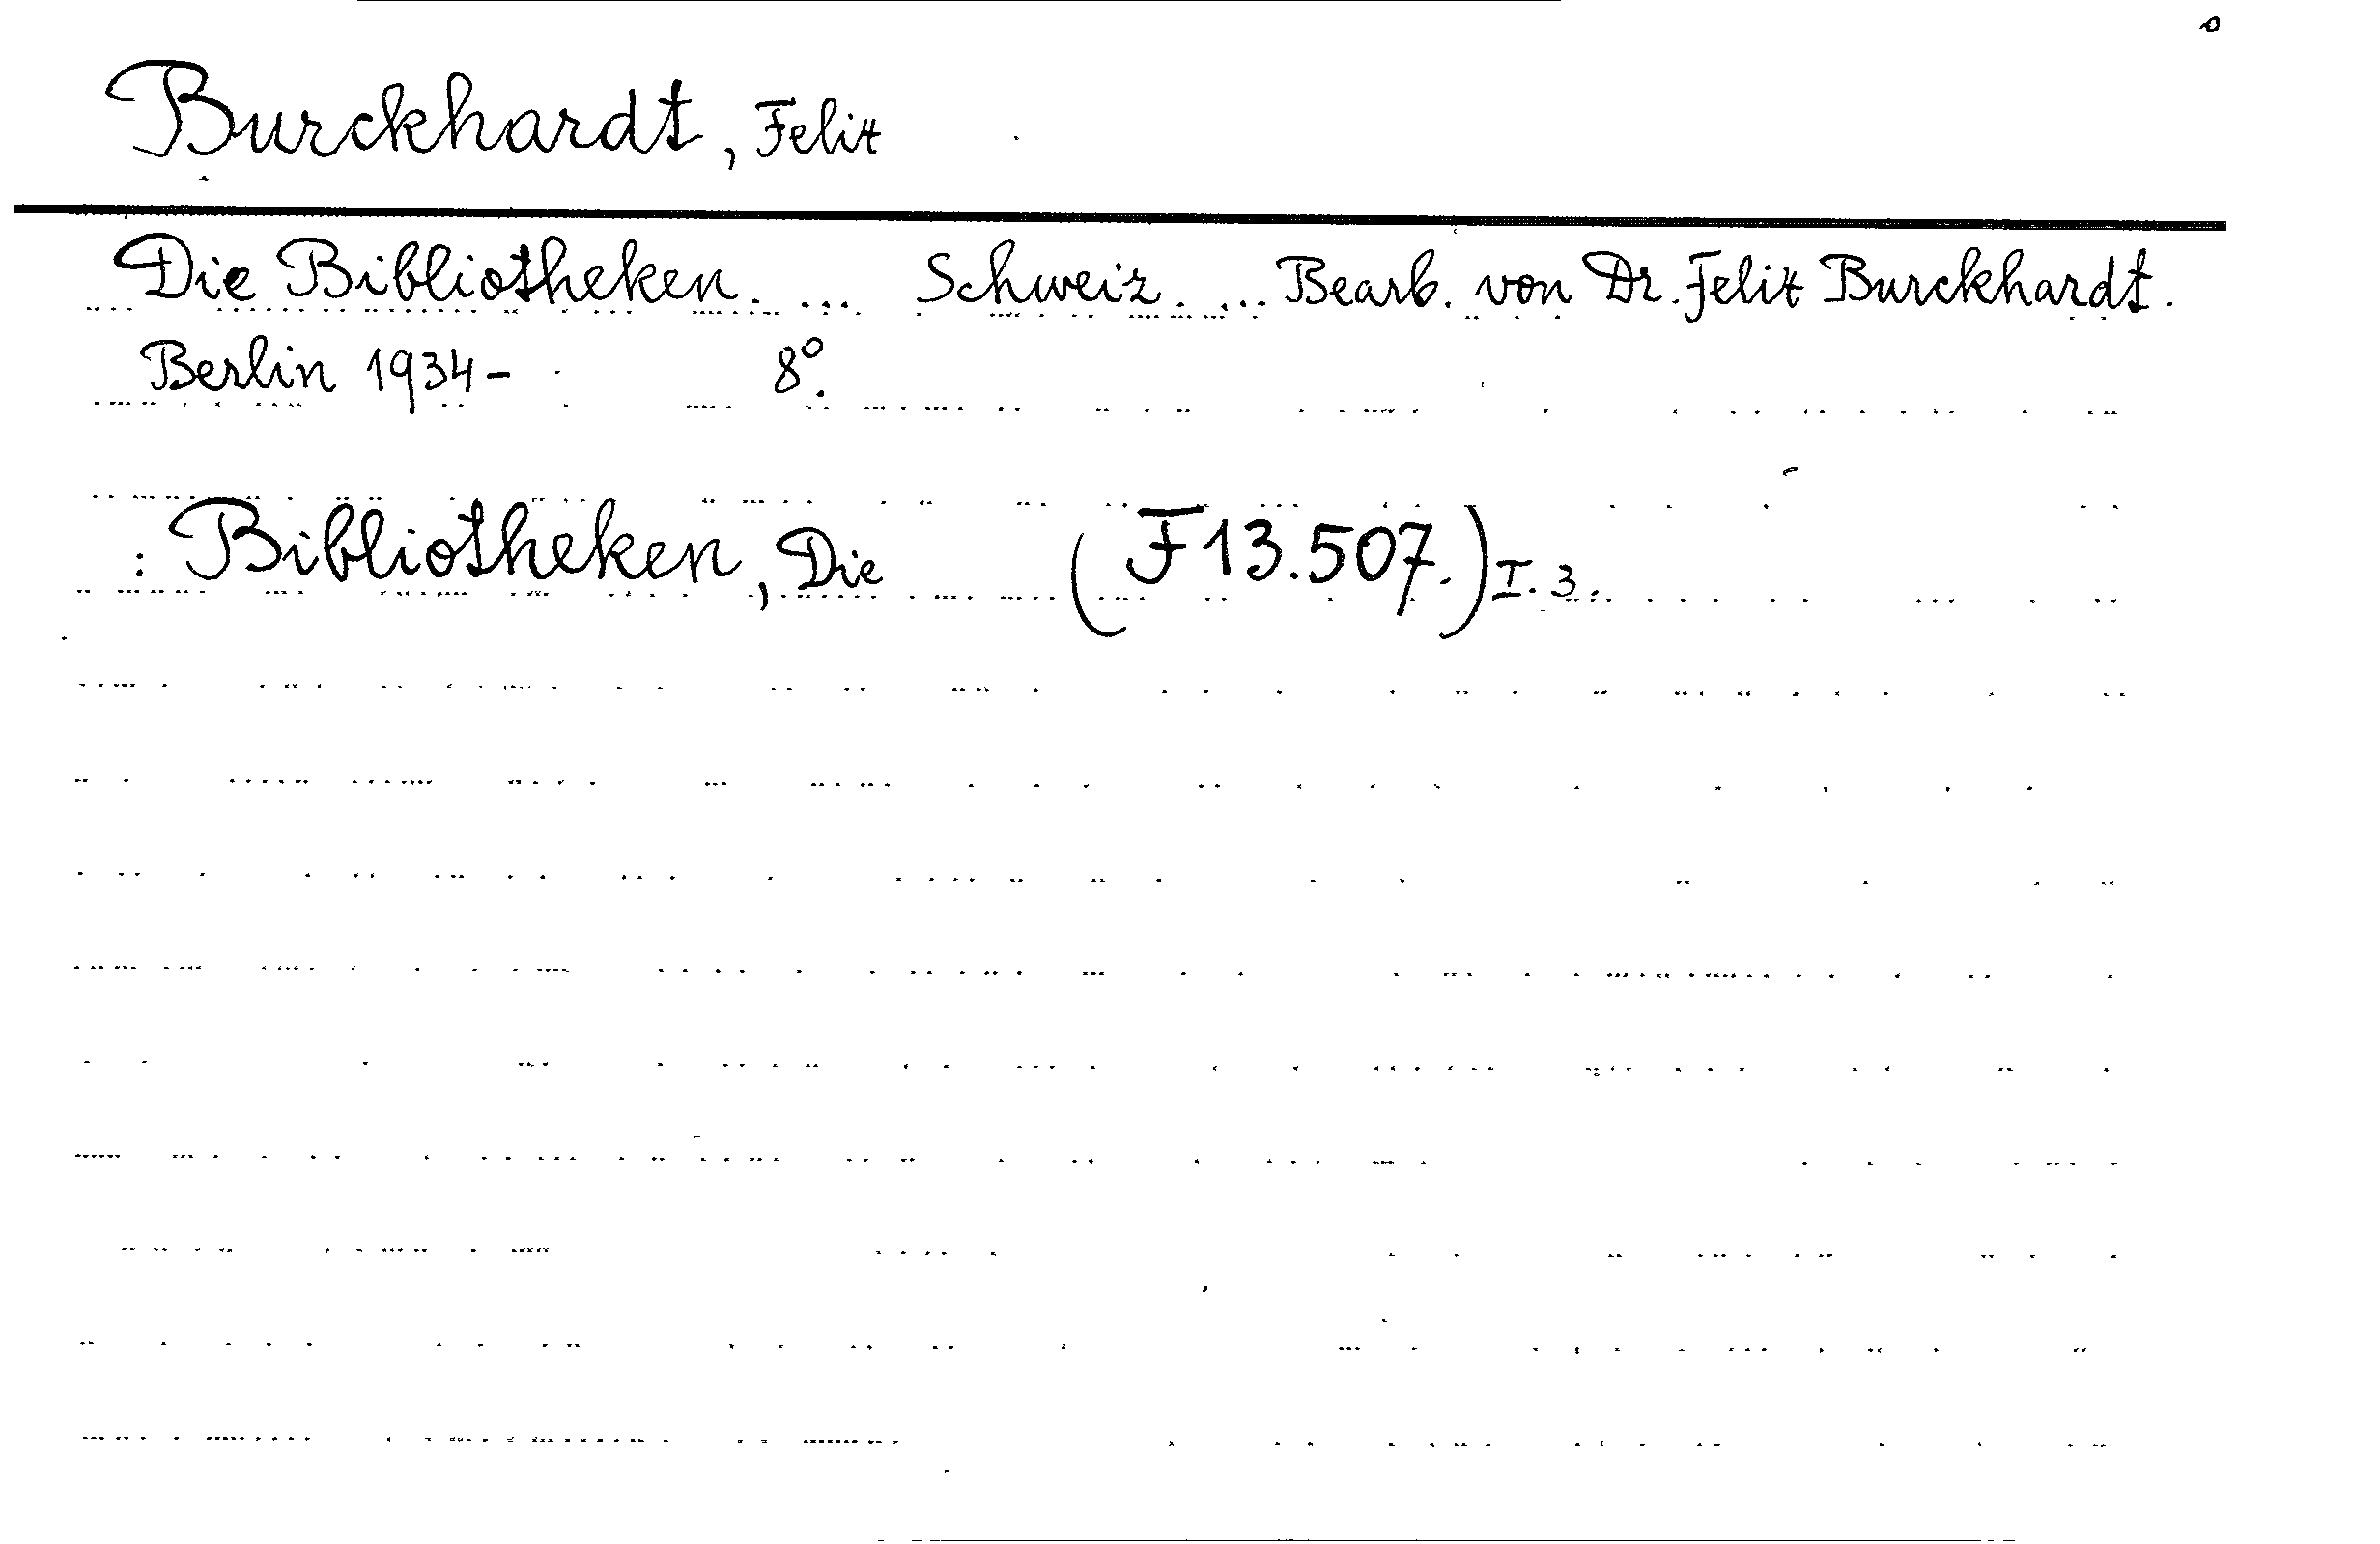 Burckhardt, Felix
Die Bibliotheken. ... Schweiz. ... Bearb. von Dr. Felix Burckhardt.
Berlin 1934- 8º.
: Bibliotheken, Die (F 13.507.) I. 3.